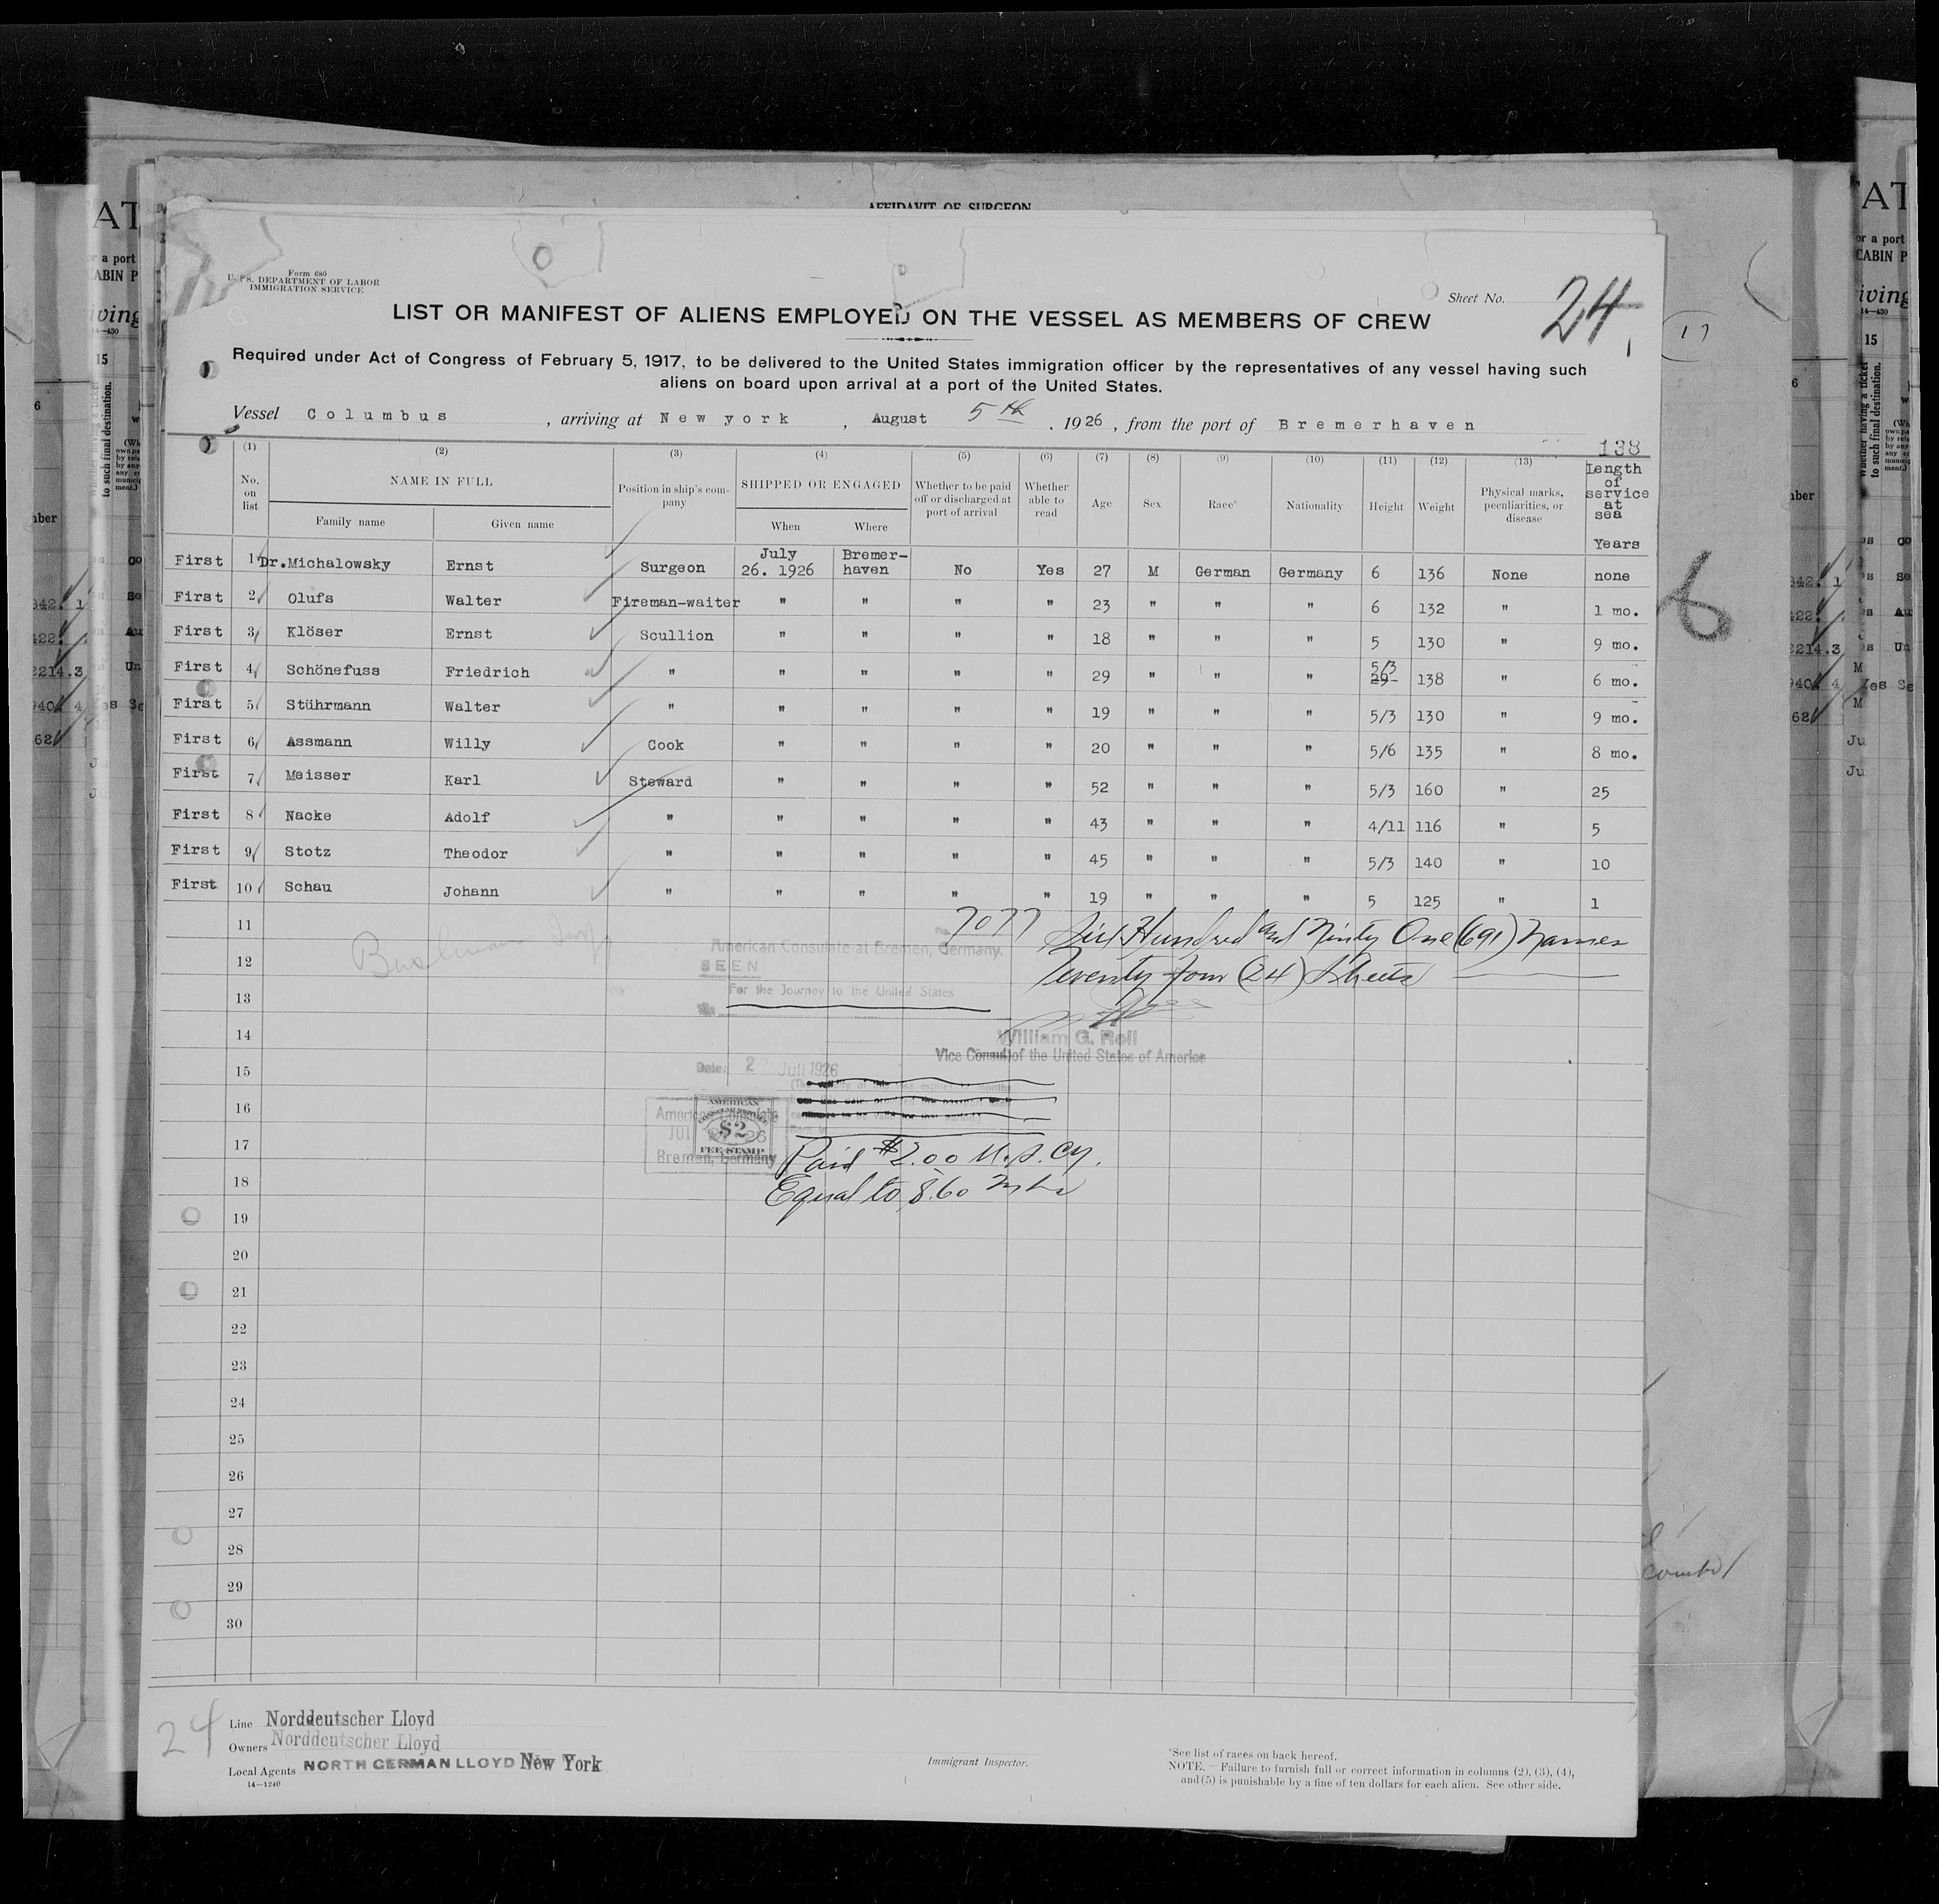 AFFIDAVIT OF SURGEON
Form 680
U. S. DEPARTMENT OF LABOR
IMMIGRATION SERVICE
Sheet No. 24
LIST OR MANIFEST OF ALIENS EMPLOYED ON THE VESSEL AS MEMBERS OF CREW
Required under Act of Congress of February 5, 1917, to be delivered to the United States immigration officer by the representatives of any vessel having such
aliens on board upon arrival at a port of the United States.
Vessel Columbus, arriving at New york, August 5th. 1926, from the port of Bremerhaven
138
(1) (2) (3) (4) (5) (6) (7) (8) (9) (10) (11) (12) (13)
No. on list NAME IN FULL Position in ship's company SHIPPED OR ENGAGED Whether to be paid off or discharged at port of arrival Whether able to read Age Sex Race* Nationality Height Weight Physical marks, peculiarities, or disease Length of service at sea
Family name Given name When Where Years
First 1 Dr. Michalowsky Ernst Surgeon July 26. 1926 Bremerhaven No Yes 27 M German Germany 6 136 None none
First 2 Olufs Walter Fireman-waiter " " " " 23 " " " 6 132 " 1 mo.
First 3 Klöser Ernst Scullion " " " " 18 " " " 5 130 " 9 mo.
First 4 Schönefuss Friedrich " " " " " 29 " " " 5/3 29 138 " 6 mo.
First 5 Stührmann Walter " " " " " 19 " " " 5/3 130 " 9 mo.
First 6 Assmann Willy Cook " " " " 20 " " " 5/6 135 " 8 mo.
First 7 Meisser Karl Steward " " " " 52 " " " 5/3 160 " 25
First 8 Nacke Adolf " " " " " 43 " " " 4/11 116 " 5
First 9 Stotz Theodor " " " " " 45 " " " 5/3 140 " 10
First 10 Schau Johann " " " " " 19 " " " 5 125 " 1
11
12
13
14
15
16
17
18
19
20
21
22
23
24
25
26
27
28
29
30
No. 7077
American Consulate at Bremen, Germany.
SEEN
For the Journey to the United States
Six Hundred and Ninty One (691) Names
Twenty four (24) Sheets
William G. Roll
Vice Consul of the United States of America
Date: 27 Juli 1926
American Consulate
JUL 27 26
Bremen, Germany
AMERICAN
$2
FEE STAMP
Paid $2.00 U.S. Cy.
Equal to 8.60 Mks
6
17
24
Line Norddeutscher Lloyd
Owners Norddeutscher Lloyd
Local Agents NORTH GERMAN LLOYD New York
14—1240
Immigrant Inspector.
*See list of races on back hereof.
NOTE.—Failure to furnish full or correct information in columns (2), (3), (4),
and (5) is punishable by a fine of ten dollars for each alien. See other side.